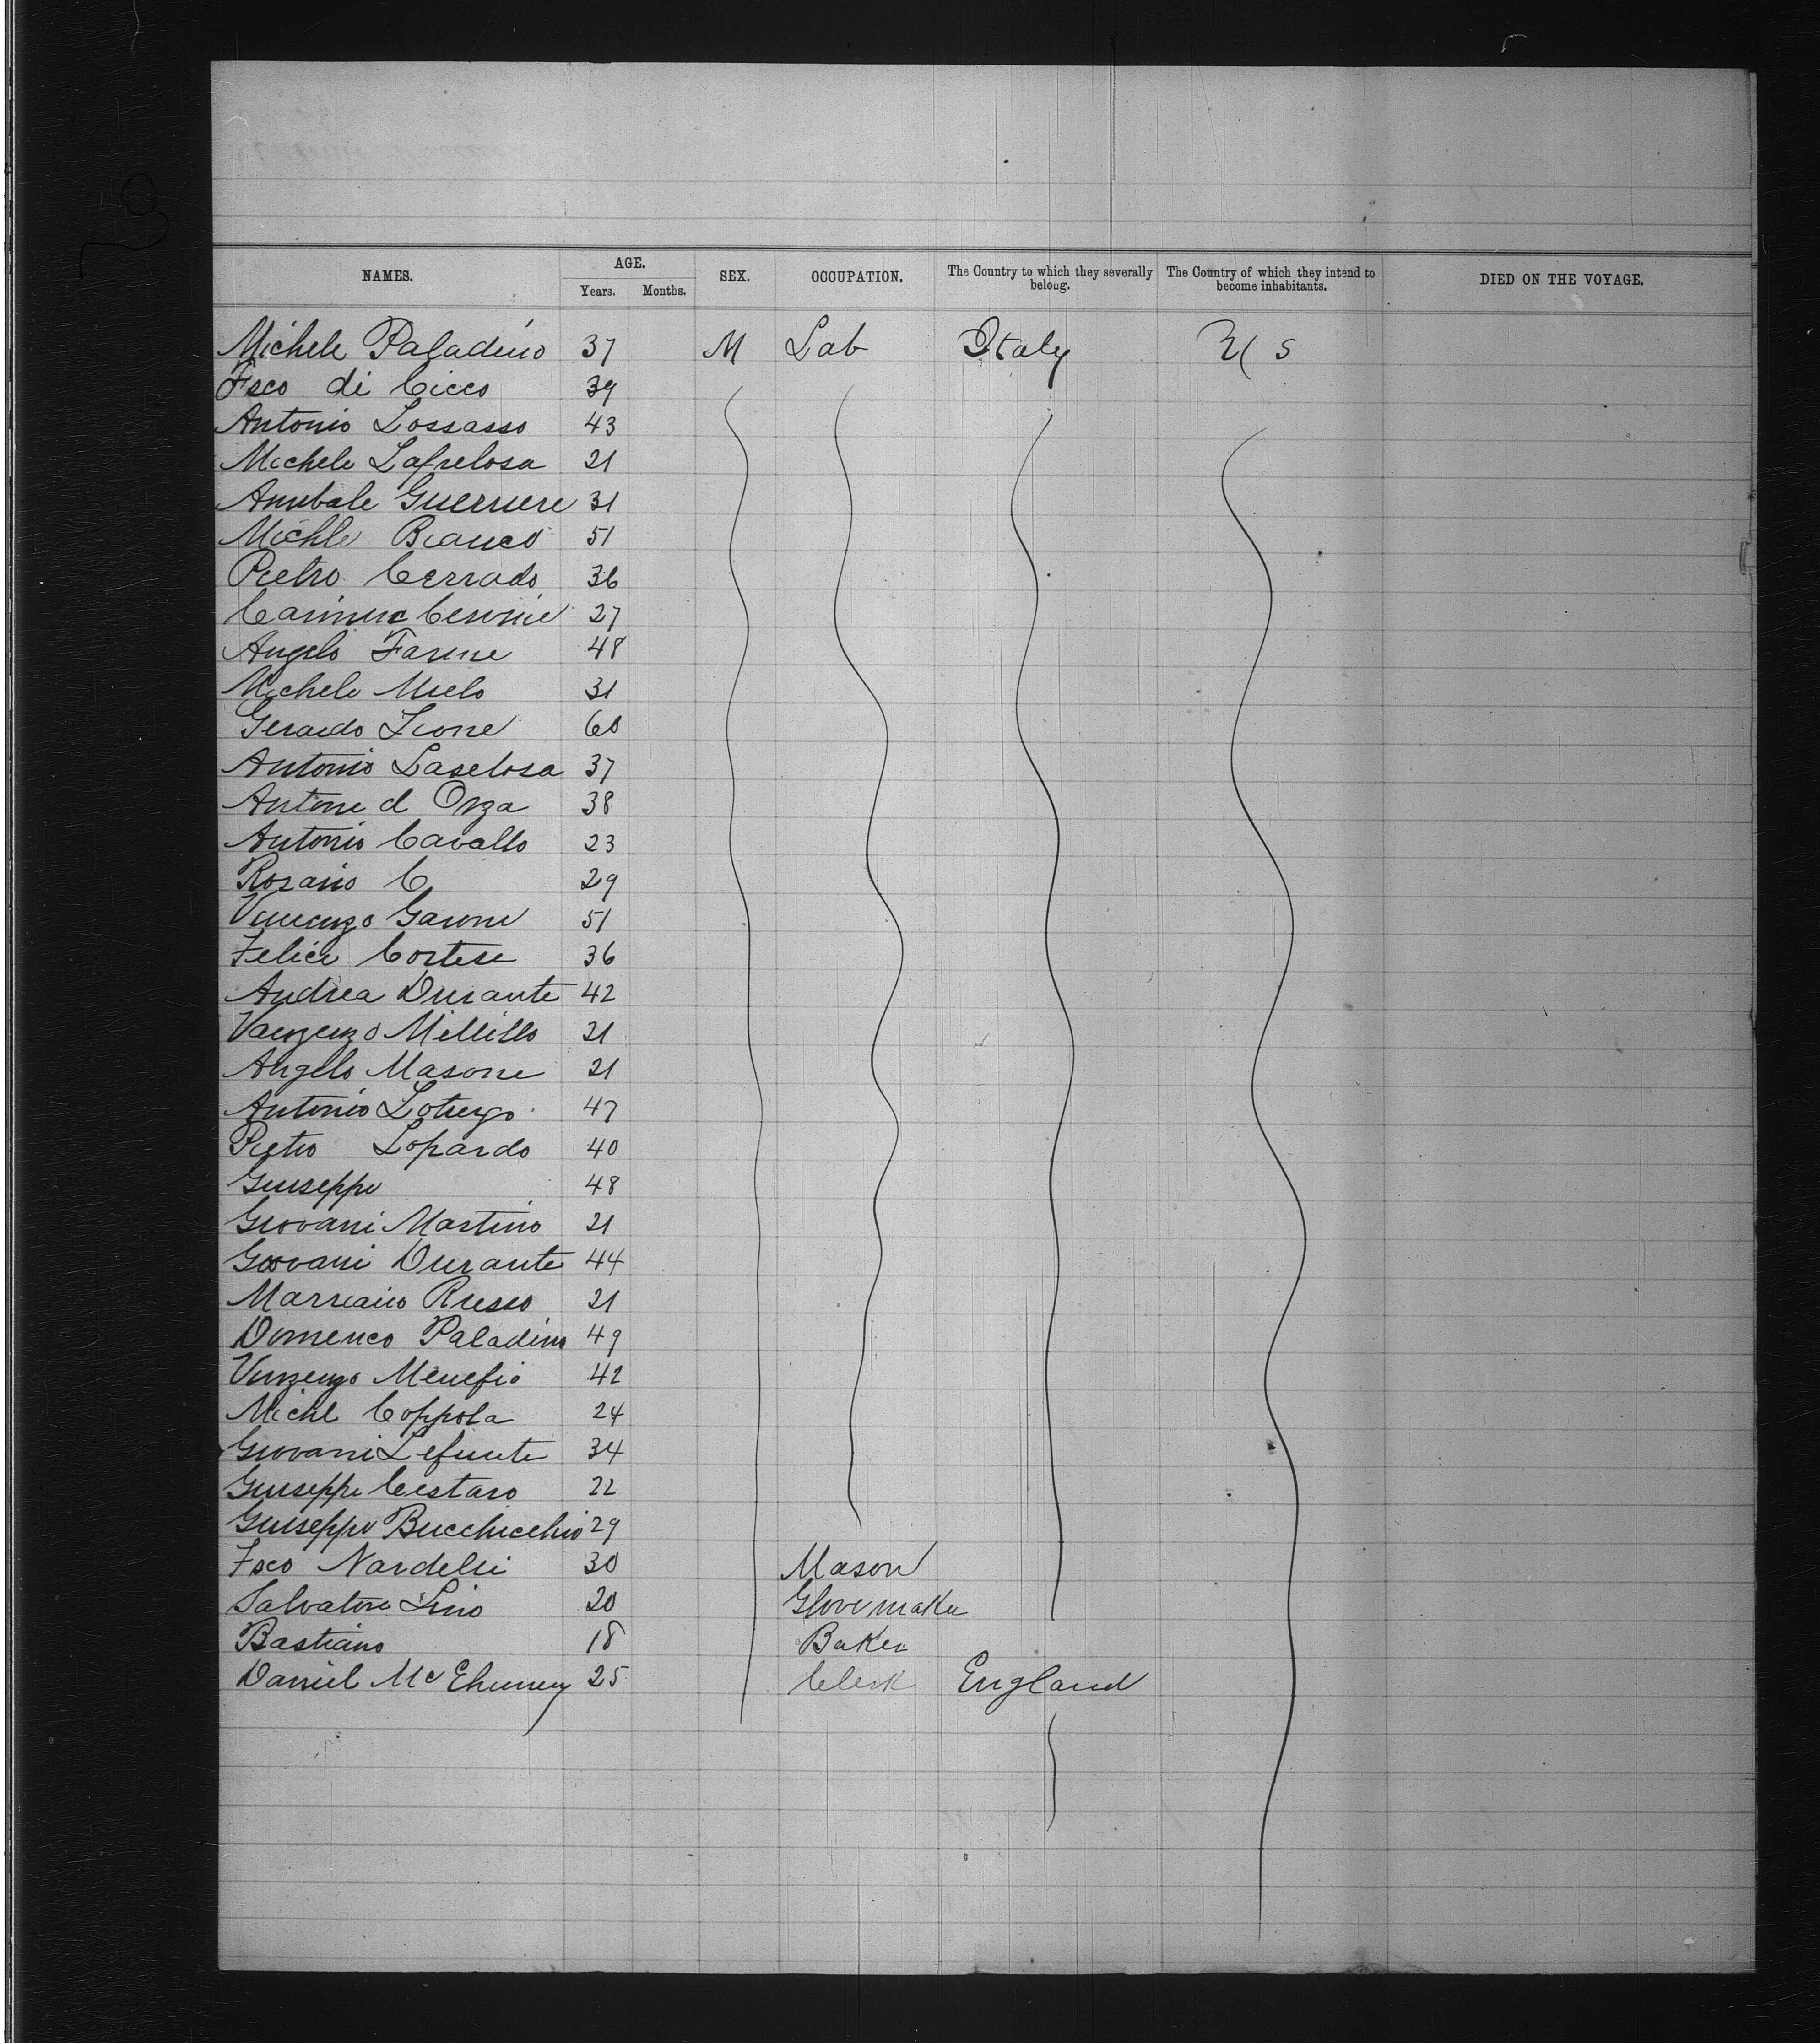 NAMES. AGE. SEX. OCCUPATION. The Country to which they severally belong. The Country of which they intend to become inhabitants. DIED ON THE VOYAGE.
Years. Months.
Michele Paladino 37 M Lab Italy U S
Fsco di Cicco 39
Antonio Lossasso 43
Michele Lafrelosa 21
Annibale Guerriere 31
Michle Bianco 51
Pietro Cerrado 36
Carmine Cervine 27
Angelo Farine 48
Michele Mielo 31
Gerardo Lione 60
Antonio Laselosa 37
Antone d Orza 38
Antonio Cavallo 23
Rosario C 29
Vincenzo Garone 51
Felice Cortese 36
Andrea Durante 42
Vaenzenzo Milillo 21
Angelo Masone 21
Antonio 47
Pietro Lopardo 40
Giuseppe 48
Giovani Martino 21
Giovani Durante 44
Marciano Russo 21
Domenco Paladino 49
Vinzenzo Menefio 42
Michl Coppola 24
Giovani Lefunte 34
Giuseppe Cestaro 22
Giuseppe Bucchicchio 29
Fsco Nardelli 30 Mason
Salvatore Lino 20 Glove maker
Bastiano 18 Baker
Daniel Mc 25 Clerk England